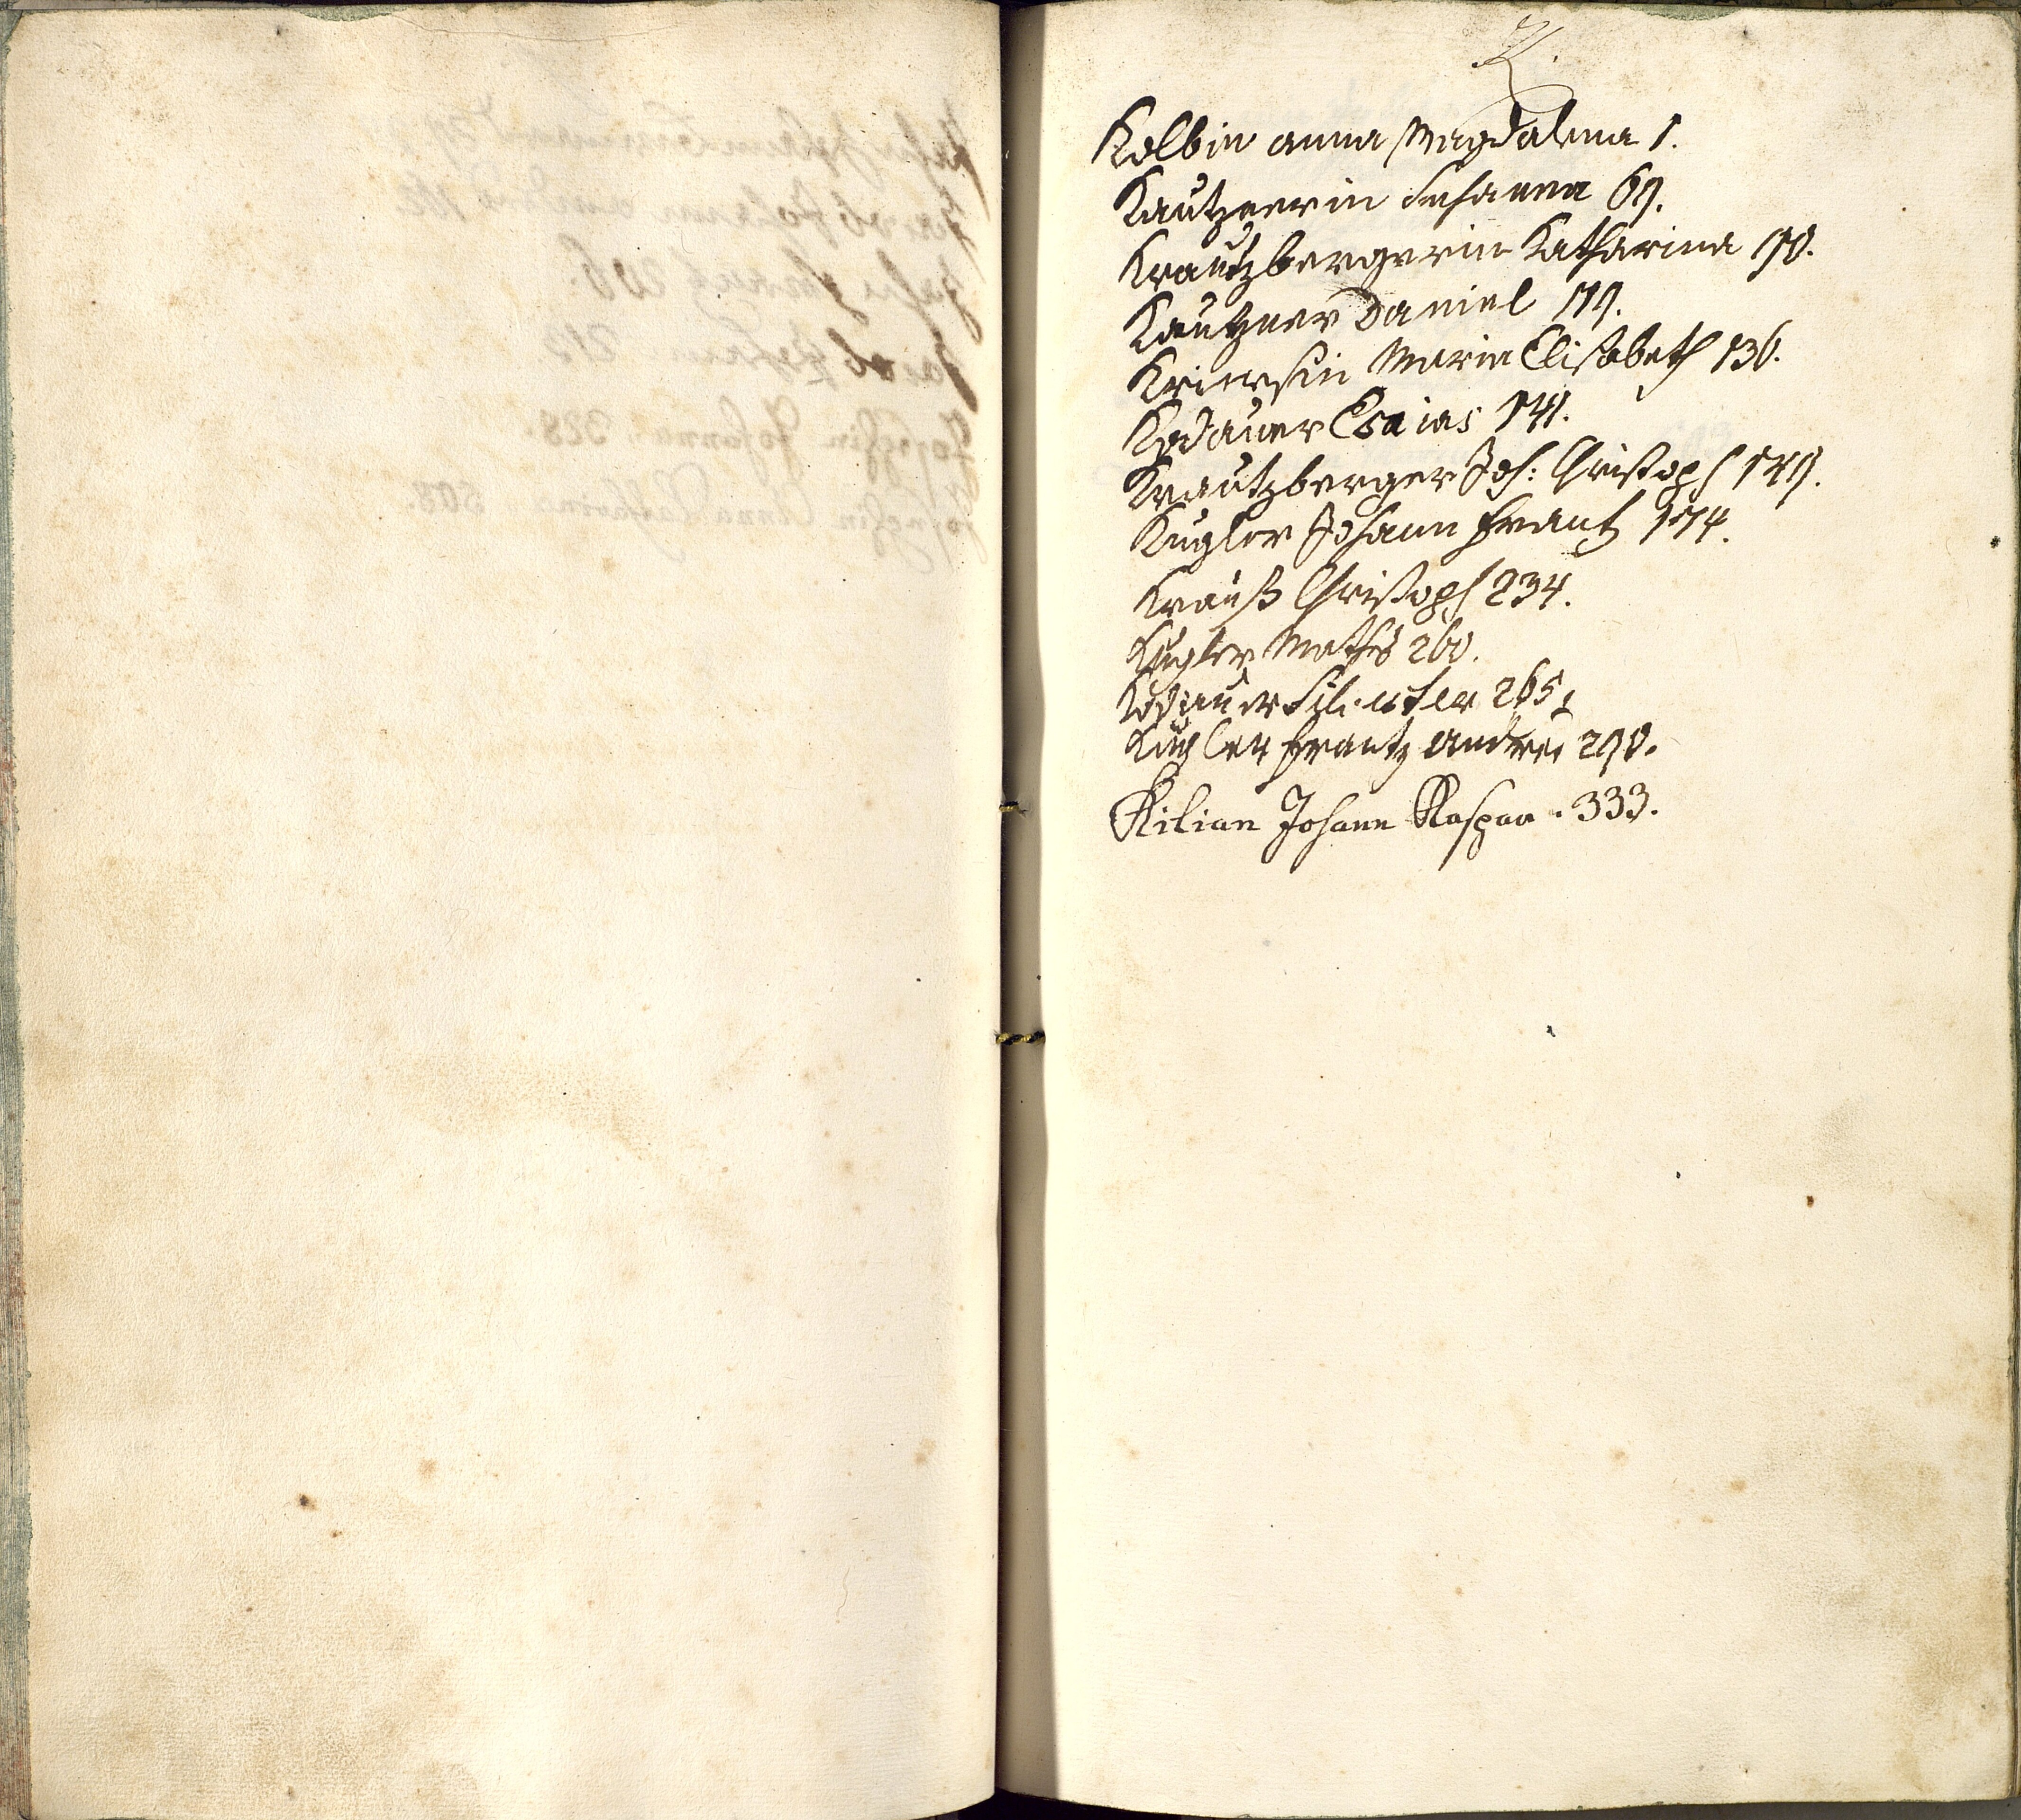 K.
Kolbin anna Magdalena 1.
Kautznerin Susanna 69.
Krautzbergerin Katharina 90.
Kautzner Daniel 119.
Maria Elisabeth 136.
Kodauer Esaias 141.
Krautzberger Joh: Christoph 149.
Kugler Johann Frantz 174.
Krauß Christoph 234.
Kugler Mathes 260.
Kodauer Silvester 265.
Kugler Frantz Andres 290.
Kilian Johann Kaspar. 333.